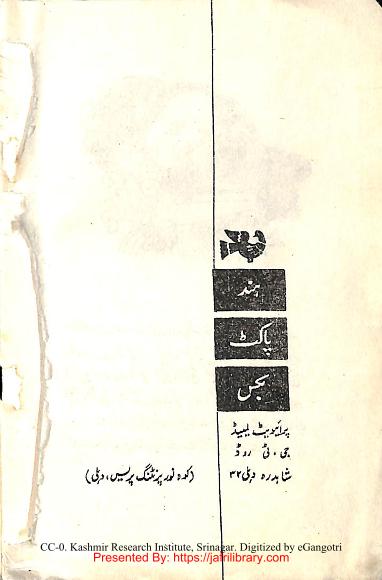 ہند
پاکٹ
بکس
پرائیویٹ لمیٹڈ
جی ۰ ٹی روڈ
شاہدرہ دہلی ۳۲
(کوہ نور پرنٹنگ پریس، دہلی)
CC-0. Kashmir Research Institute, Srinagar. Digitized by eGangotri
Presented By: https://jafrilibrary.com